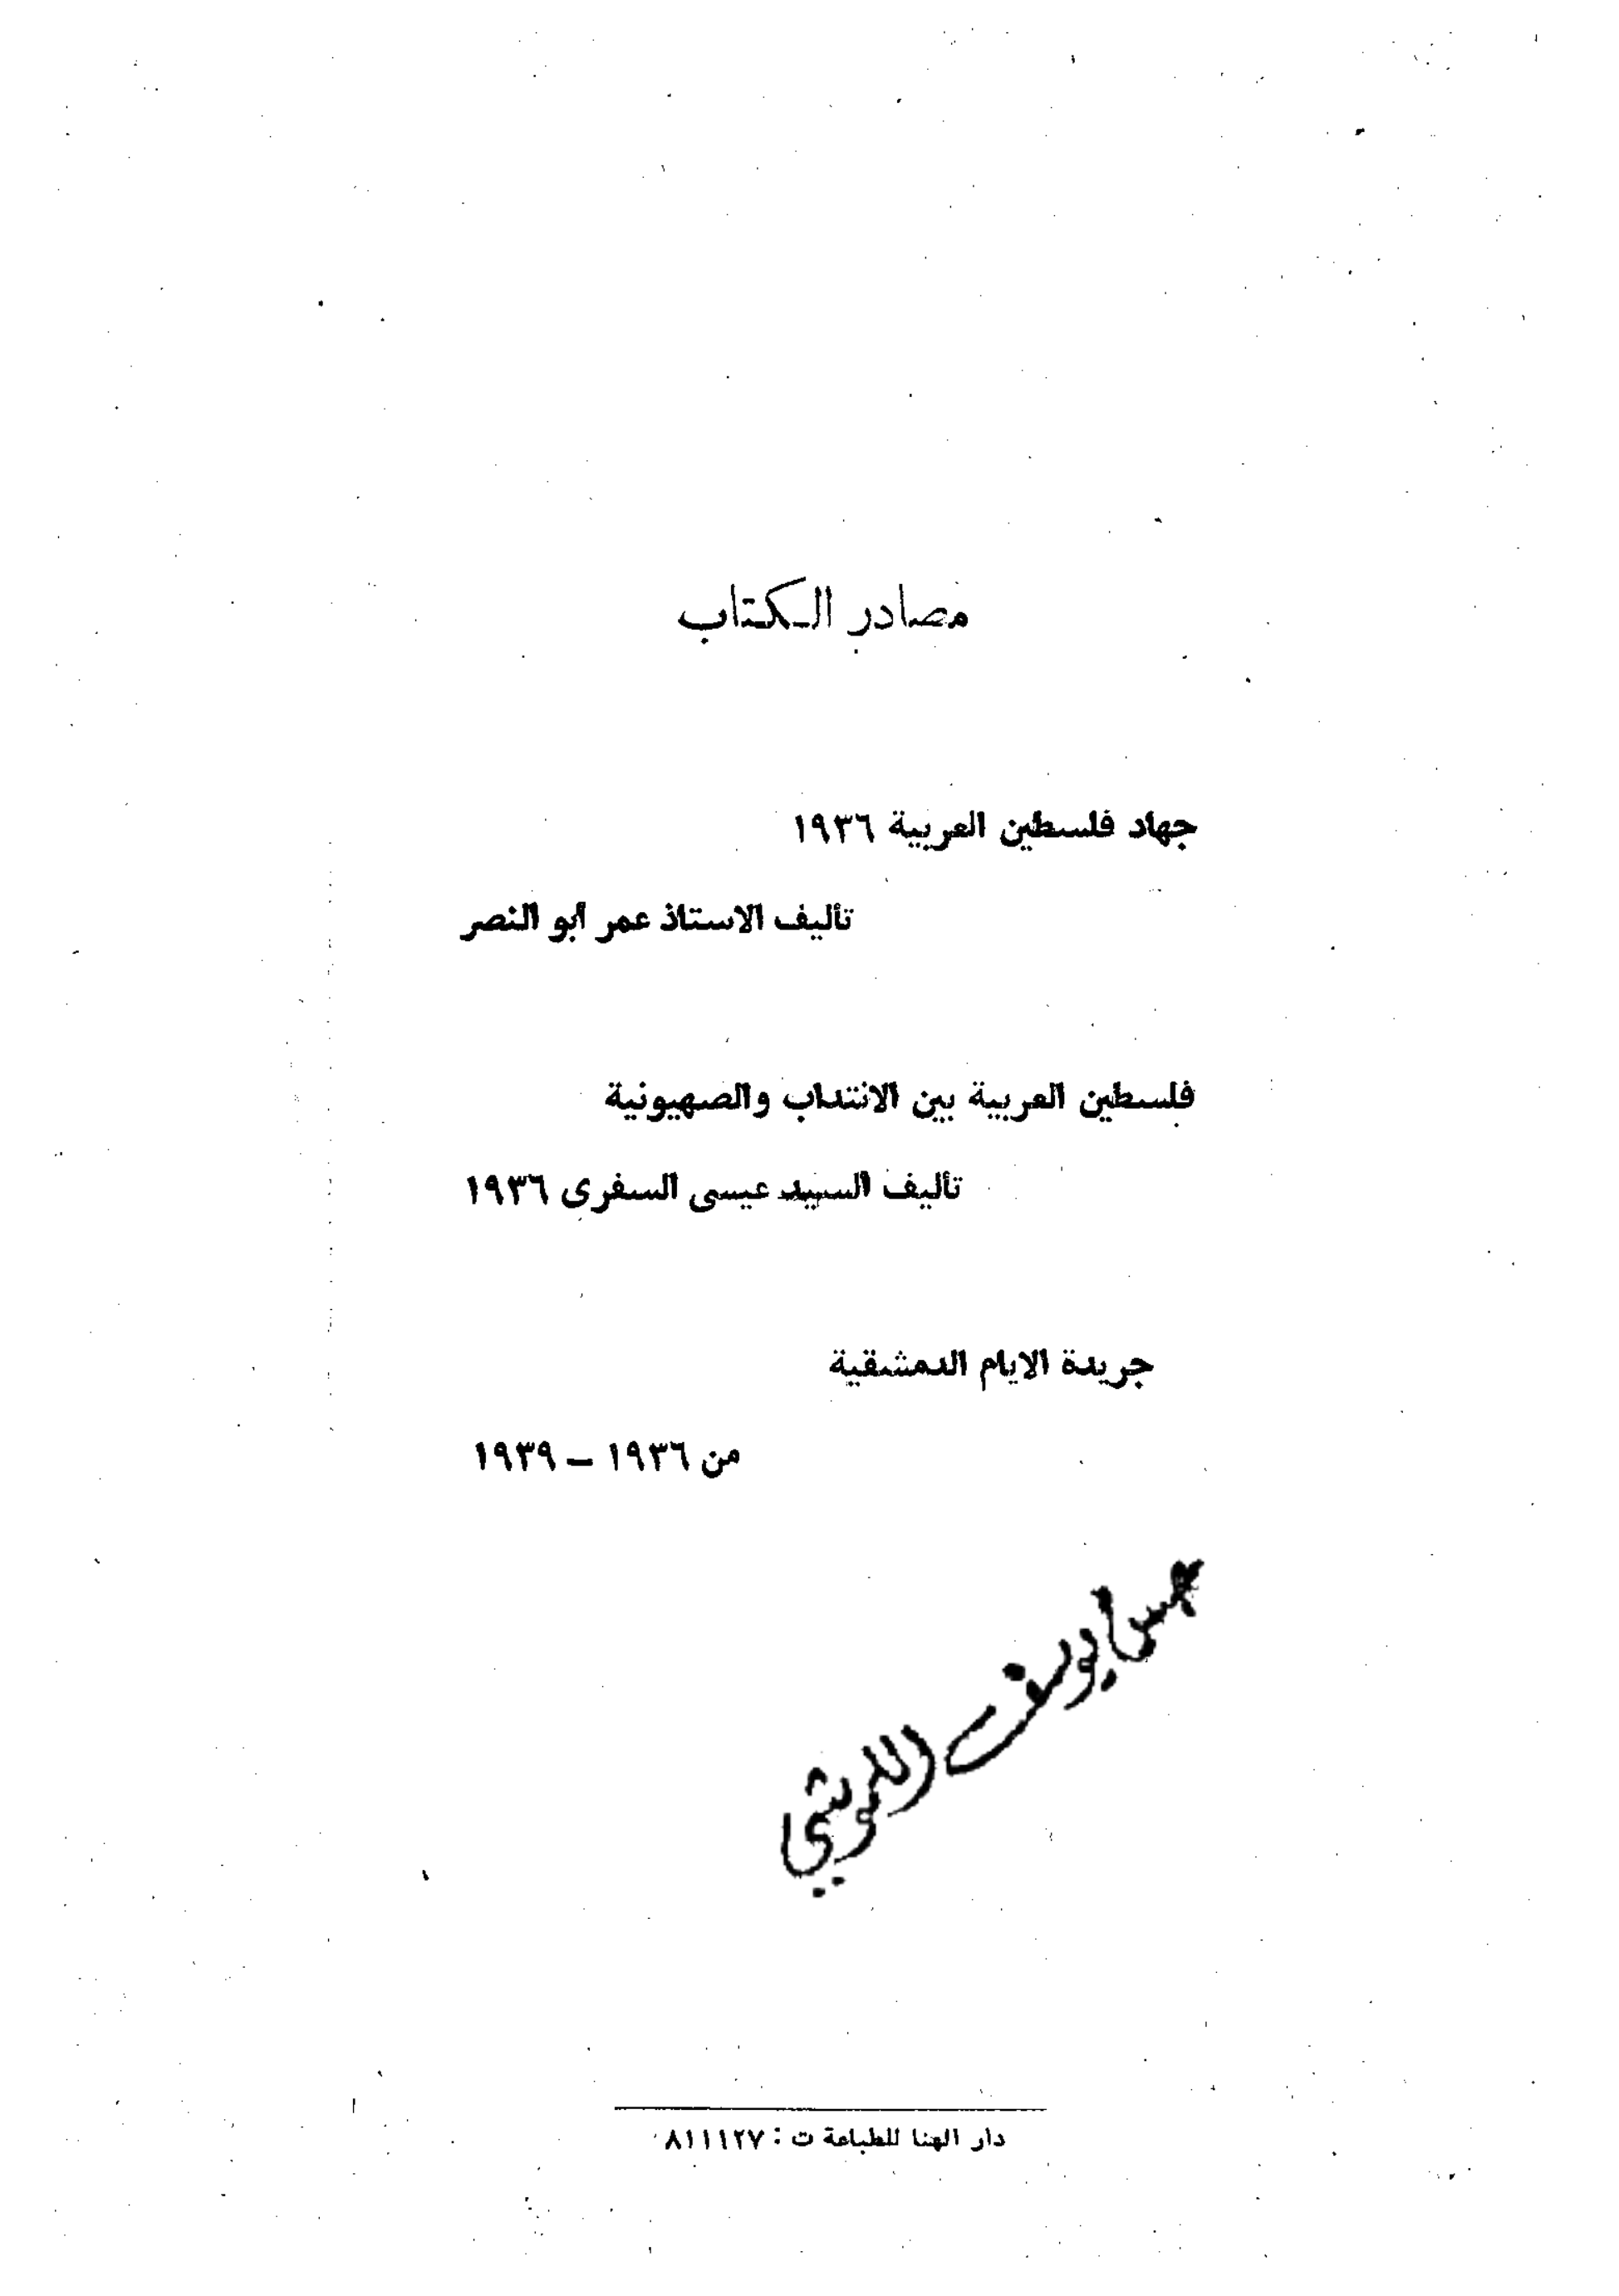 مصادر الكتاب
جهاد فلسطين العربية ١٩٣٦
تأليف الاستاذ عمر أبو النصر
فلسطين العربية بين الانتداب والصهيونية
تأليف السيد عيسى السفرى ١٩٣٦
جريدة الايام الدمشقية
من ١٩٣٦ – ١٩٣٩
يوسف
دار الهنا للطباعة ت : ٨١١١٢٧